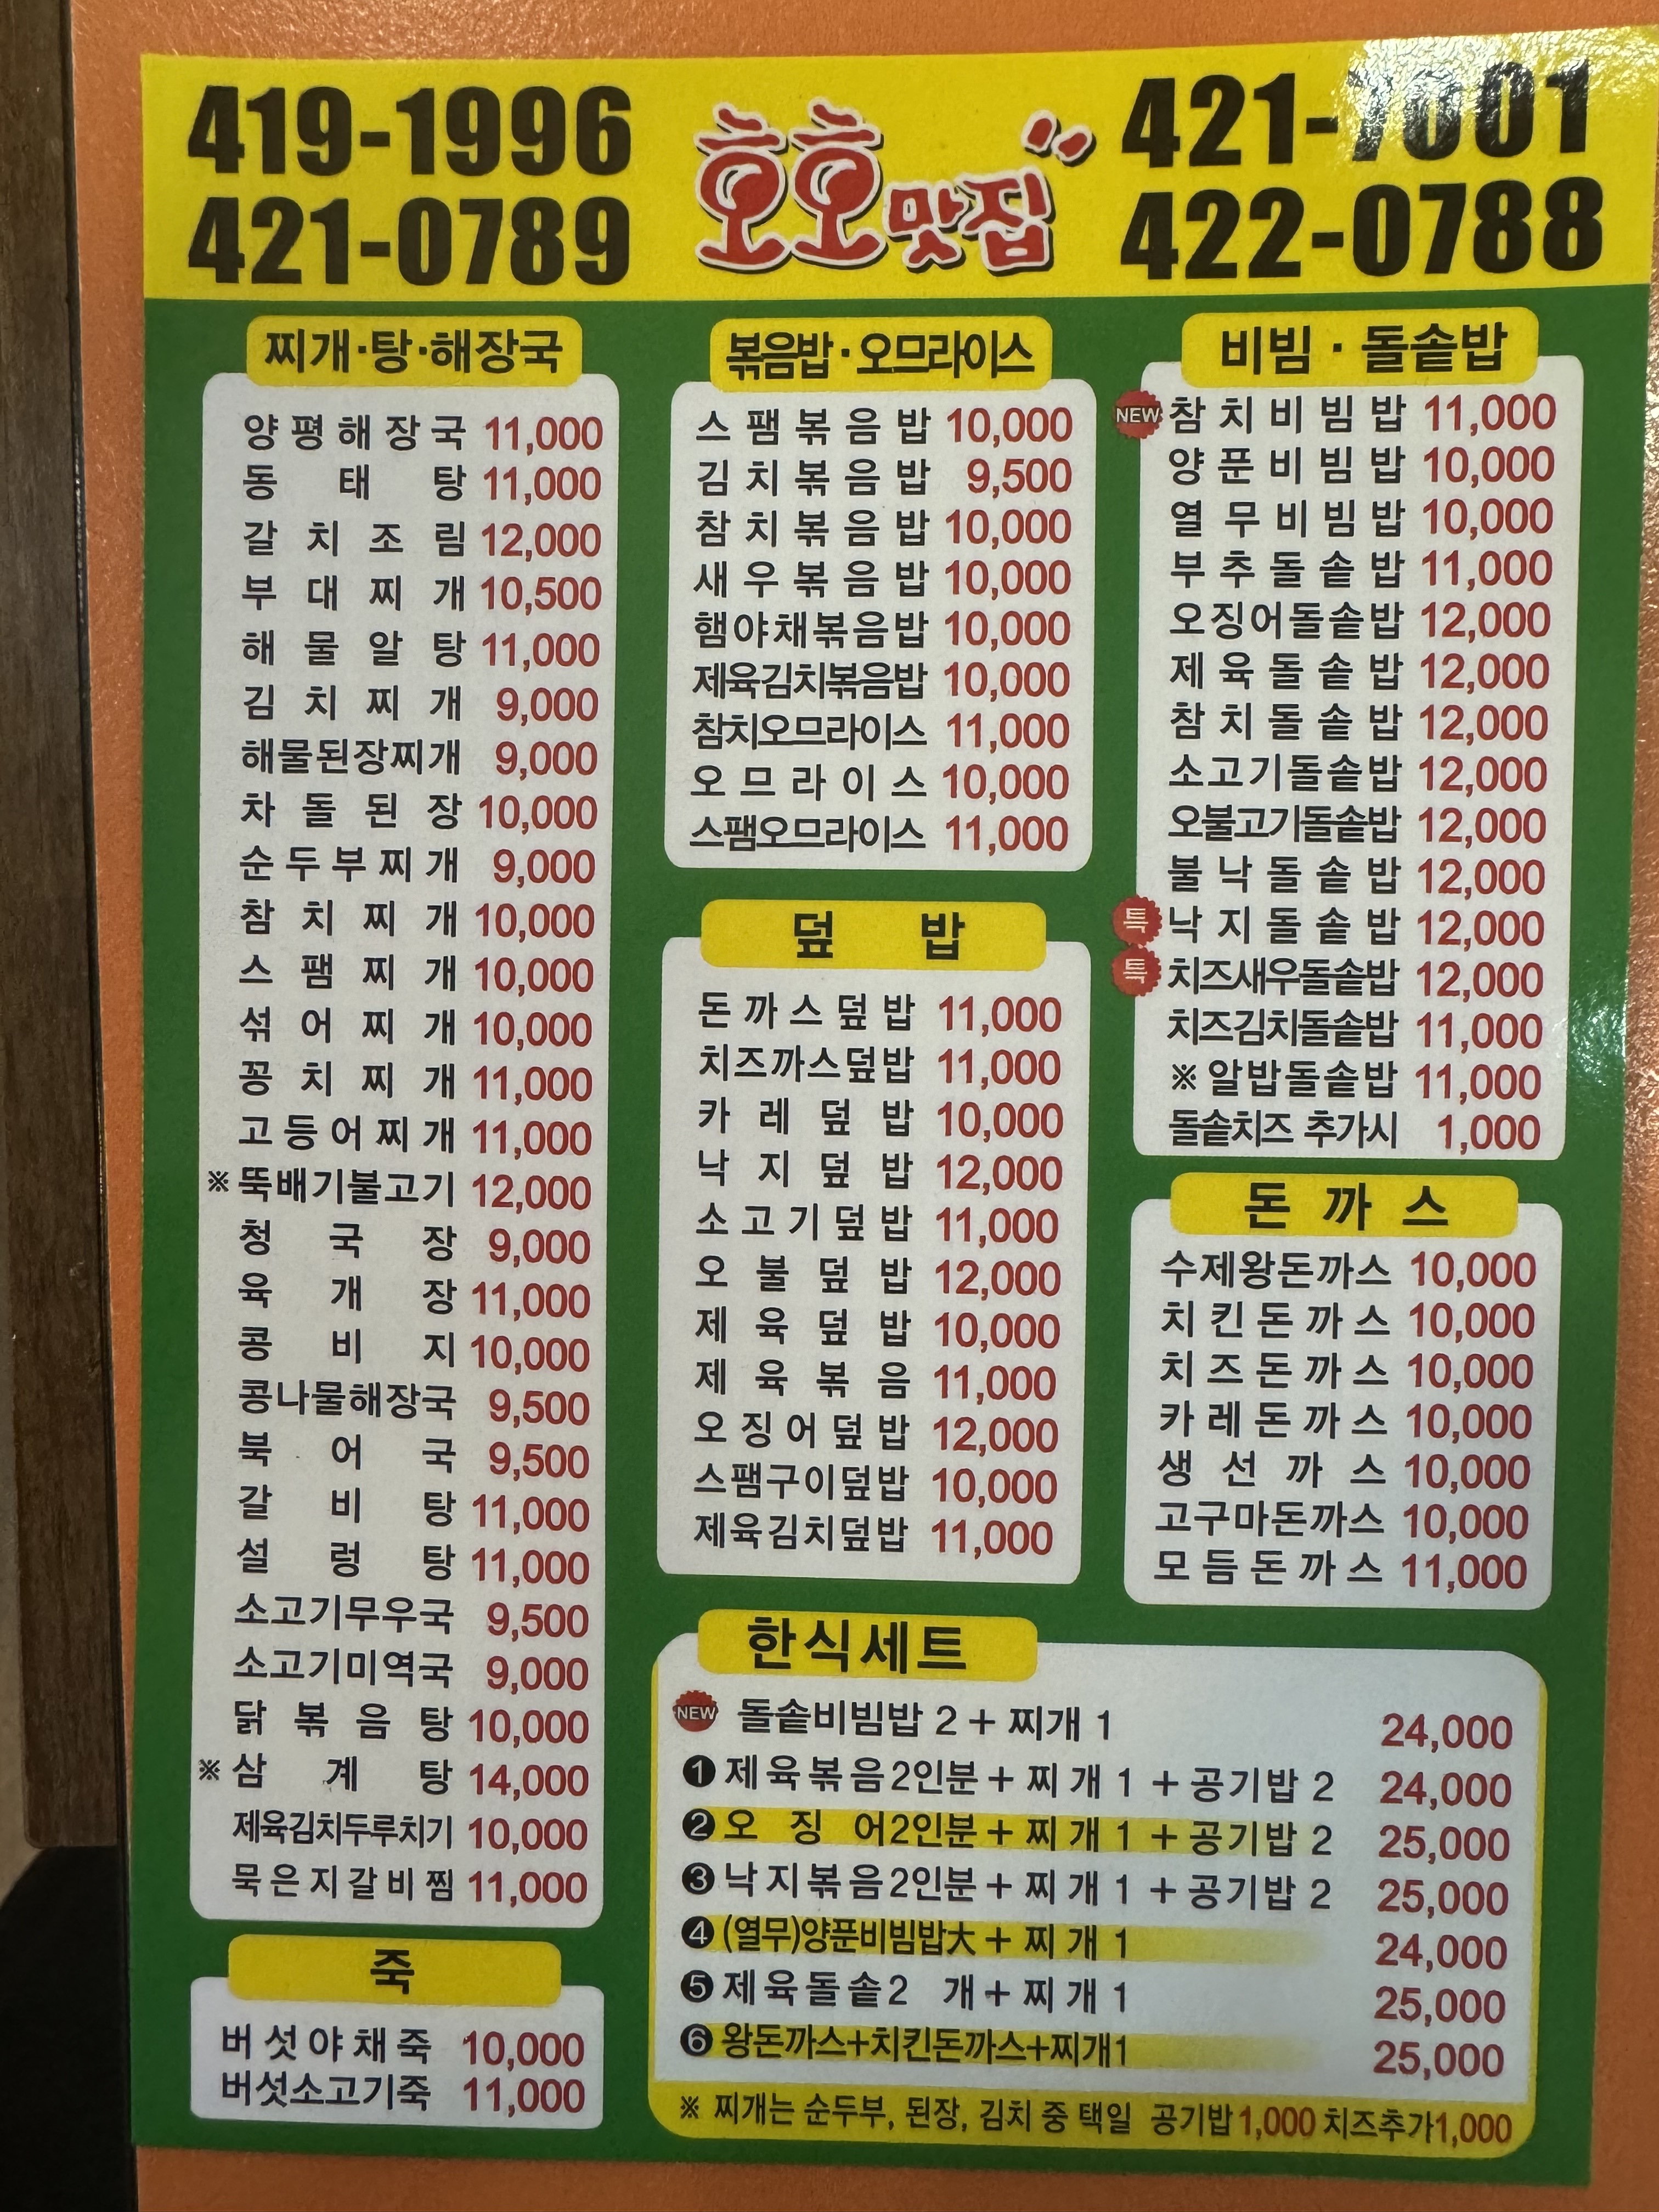 419-1996
421-0789
호호맛집
421-7001
422-0788
찌개·탕·해장국
양평해장국 11,000
동태탕 11,000
갈치조림 12,000
부대찌개 10,500
해물알탕 11,000
김치찌개 9,000
해물된장찌개 9,000
차돌된장 10,000
순두부찌개 9,000
참치찌개 10,000
스팸찌개 10,000
섞어찌개 10,000
꽁치찌개 11,000
고등어찌개 11,000
※뚝배기불고기 12,000
청국장 9,000
육개장 11,000
콩비지 10,000
콩나물해장국 9,500
북어국 9,500
갈비탕 11,000
설렁탕 11,000
소고기무우국 9,500
소고기미역국 9,000
닭볶음탕 10,000
※삼계탕 14,000
제육김치두루치기 10,000
묵은지갈비찜 11,000
죽
버섯야채죽 10,000
버섯소고기죽 11,000
볶음밥·오므라이스
스팸볶음밥 10,000
김치볶음밥 9,500
참치볶음밥 10,000
새우볶음밥 10,000
햄야채볶음밥 10,000
제육김치볶음밥 10,000
참치오므라이스 11,000
오므라이스 10,000
스팸오므라이스 11,000
덮밥
돈까스덮밥 11,000
치즈까스덮밥 11,000
카레덮밥 10,000
낙지덮밥 12,000
소고기덮밥 11,000
오불덮밥 12,000
제육덮밥 10,000
제육볶음 11,000
오징어덮밥 12,000
스팸구이덮밥 10,000
제육김치덮밥 11,000
비빔·돌솥밥
NEW 참치비빔밥 11,000
양푼비빔밥 10,000
열무비빔밥 10,000
부추돌솥밥 11,000
오징어돌솥밥 12,000
제육돌솥밥 12,000
참치돌솥밥 12,000
소고기돌솥밥 12,000
오불고기돌솥밥 12,000
불낙돌솥밥 12,000
특 낙지돌솥밥 12,000
특 치즈새우돌솥밥 12,000
치즈김치돌솥밥 11,000
※알밥돌솥밥 11,000
돌솥치즈 추가시 1,000
돈까스
수제왕돈까스 10,000
치킨돈까스 10,000
치즈돈까스 10,000
카레돈까스 10,000
생선까스 10,000
고구마돈까스 10,000
모듬돈까스 11,000
한식세트
NEW 돌솥비빔밥 2 + 찌개 1 24,000
❶ 제육볶음2인분 + 찌개 1 + 공기밥 2 24,000
❷ 오징어2인분 + 찌개 1 + 공기밥 2 25,000
❸ 낙지볶음2인분 + 찌개 1 + 공기밥 2 25,000
❹ (열무)양푼비빔밥大 + 찌개 1 24,000
❺ 제육돌솥2 개 + 찌개 1 25,000
❻ 왕돈까스+치킨돈까스+찌개1 25,000
※ 찌개는 순두부, 된장, 김치 중 택일 공기밥1,000 치즈추가1,000